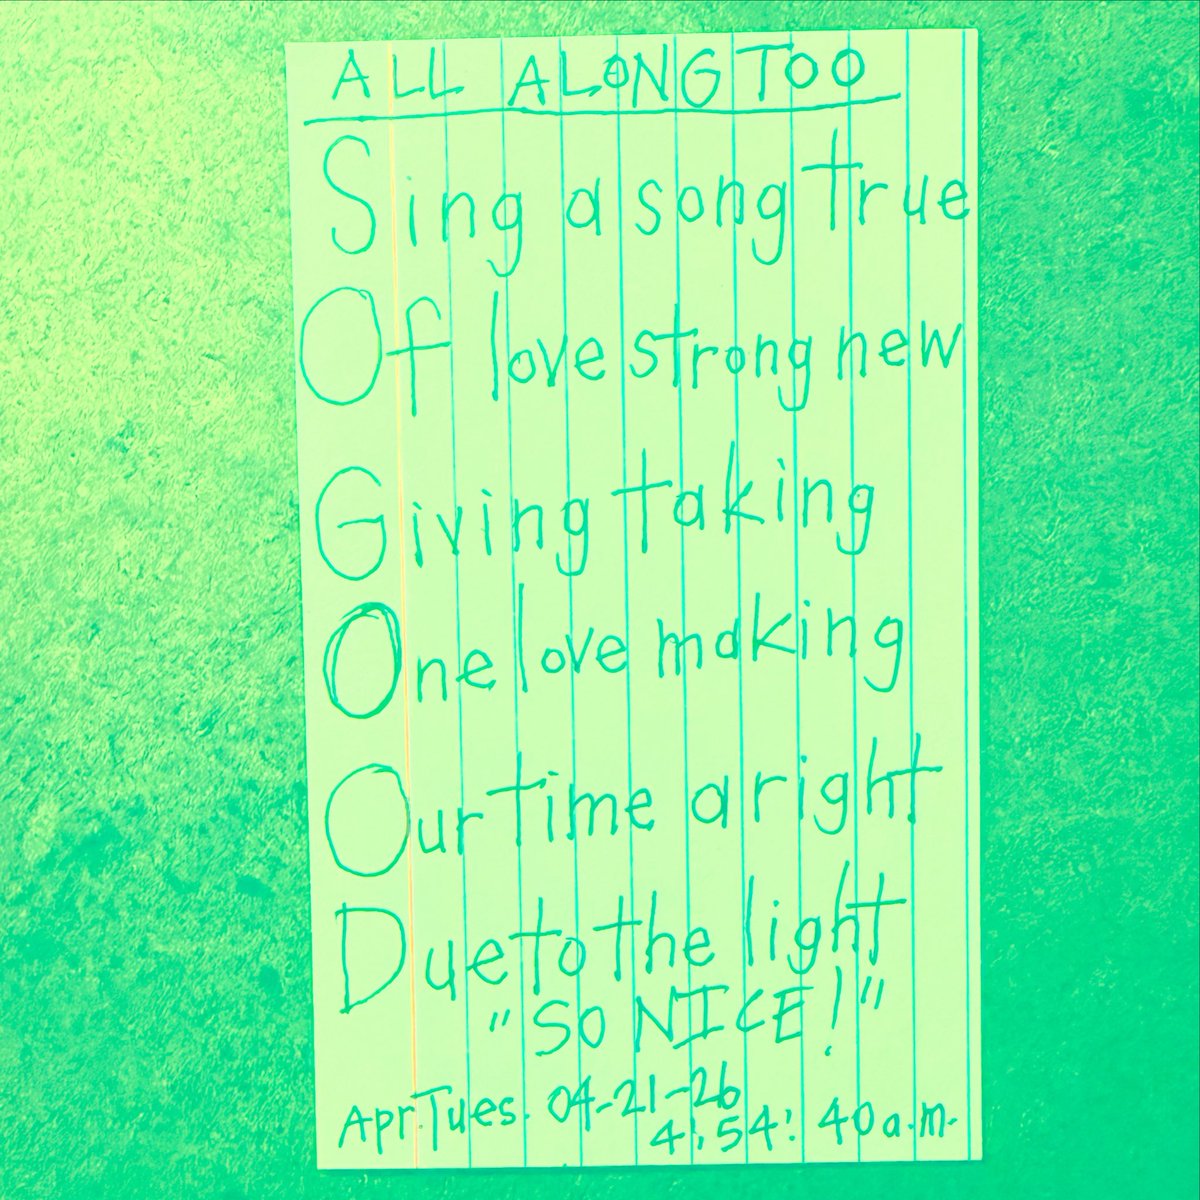 ALL ALONG TOO
Sing a song true
Of love strong new
Giving taking
One love making
Our time aright
Due to the light
"SO NICE!"
Apr. Tues. 04-21-26
4:54:40 a.m.